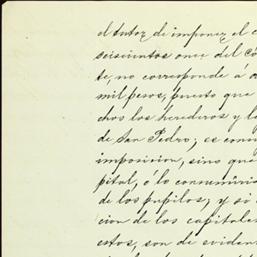 el tutor de imponer el c
seiscientos once del Có
te, no corresponde á
mil pesos, puesto que
chos los herederos y l
de San Pedro; es conv
imposicion, sino que
pital, ó lo consumiria
de los pupilos; y si
cion de los capitales
estos, son de eviden